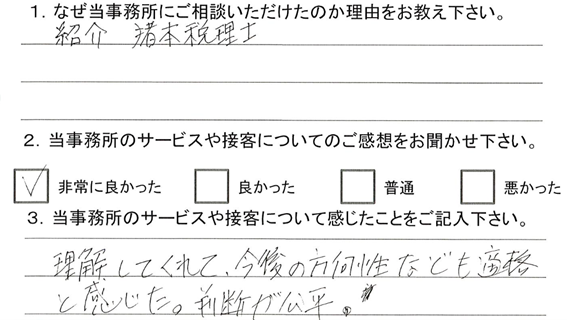 1. なぜ当事務所にご相談いただけたのか理由をお教え下さい。
紹介 猪本税理士
2. 当事務所のサービスや接客についてのご感想をお聞かせ下さい。
非常に良かった 良かった 普通 悪かった
3. 当事務所のサービスや接客について感じたことをご記入下さい。
理解してくれて、今後の方向性なども
と感じた。判断が公平。